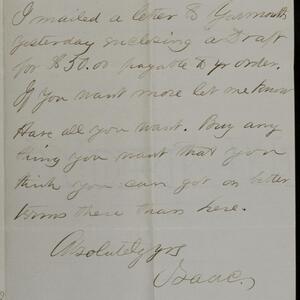 I mailed a letter to Yarmouth
yesterday enclosing a Draft
for $50.00 payable to yr order.
If you want more let me know
Have all you want. Buy any
thing you want that you
think you can get on better
terms there than here.
Absolutely yrs
Isaac.